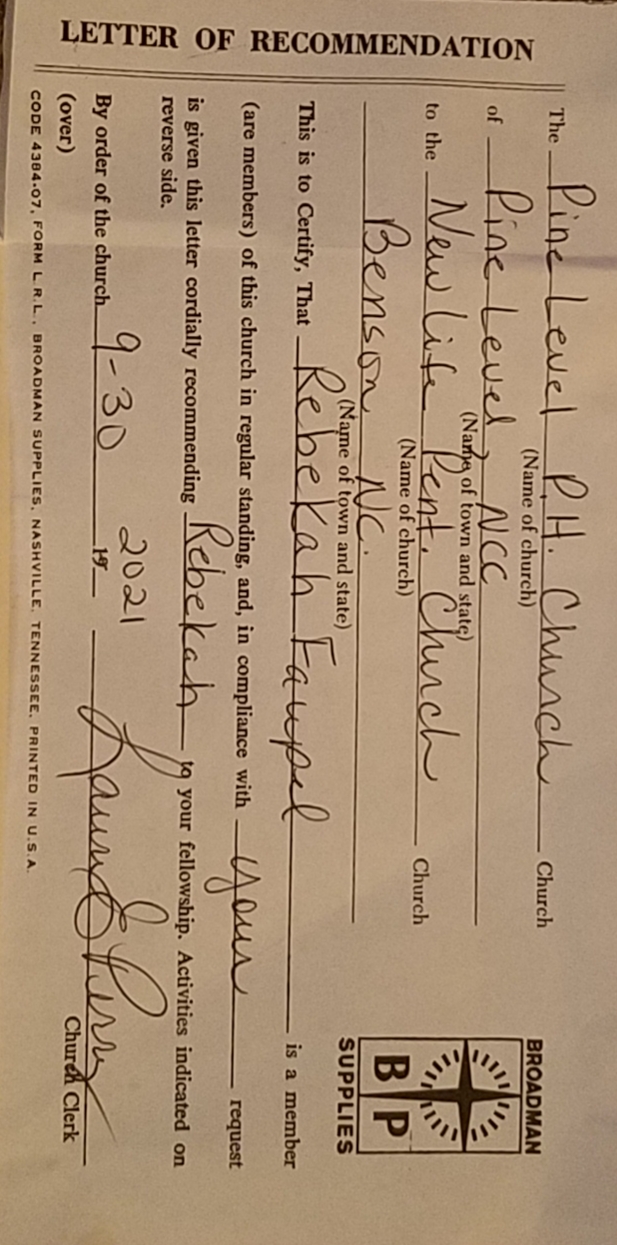 LETTER OF RECOMMENDATION
BROADMAN
B P
SUPPLIES
The Pine Level P.H. Church Church
(Name of church)
of Pine Level, NCC
(Name of town and state)
to the New Life Pent. Church Church
(Name of church)
Benson NC.
(Name of town and state)
This is to Certify, That Rebekah Faupel is a member
(are members) of this church in regular standing, and, in compliance with your request
is given this letter cordially recommending Rebekah to your fellowship. Activities indicated on
reverse side.
By order of the church 9-30 2021 19
(over) Church Clerk
CODE 4384-07, FORM L.R.L., BROADMAN SUPPLIES, NASHVILLE, TENNESSEE, PRINTED IN U.S.A.